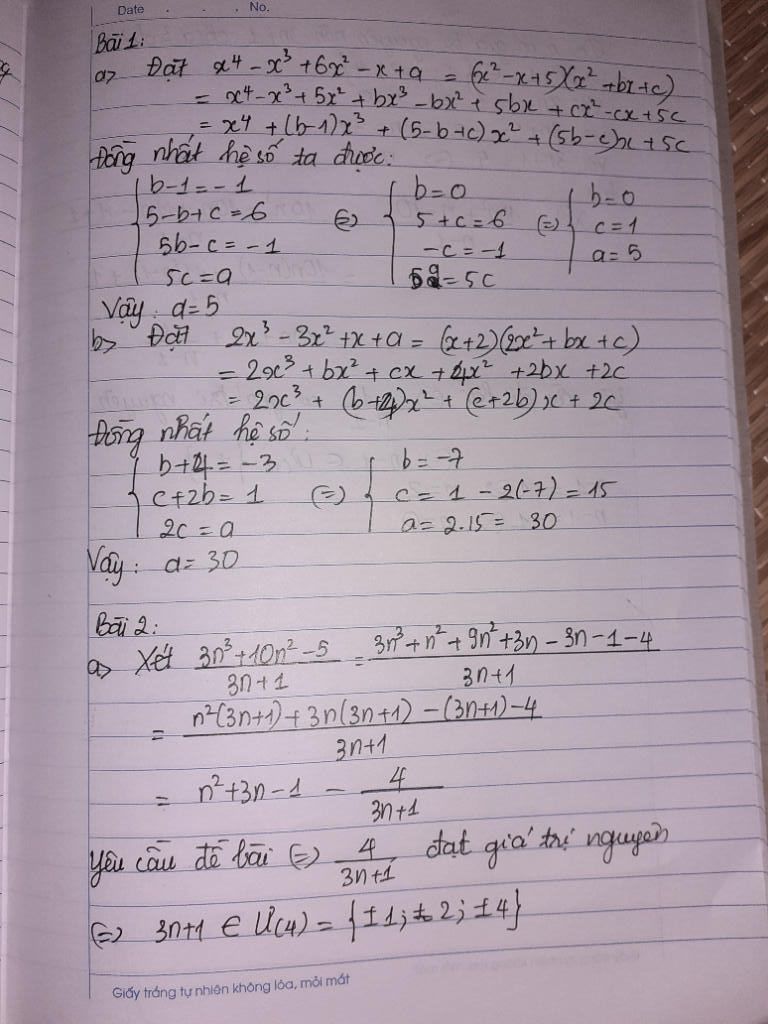 Date . . . No.
Bài 1:
a> Đặt x⁴ - x³ + 6x² - x + a = (x² - x + 5)(x² + bx + c)
= x⁴ - x³ + 5x² + bx³ - bx² + 5bx + cx² - cx + 5c
= x⁴ + (b-1)x³ + (5-b+c)x² + (5b-c)x + 5c
Đồng nhất hệ số ta được:
{ b-1 = -1 { b=0 { b=0
5-b+c = 6 (=) 5+c=6 (=) c=1
5b-c = -1 -c=-1 a=5
5c = a a = 5c
Vậy: a=5
b> Đặt 2x³ - 3x² + x + a = (x+2)(2x² + bx + c)
= 2x³ + bx² + cx + 4x² + 2bx + 2c
= 2x³ + (b+4)x² + (c+2b)x + 2c
Đồng nhất hệ số:
{ b+4 = -3 { b=-7
c+2b = 1 (=) c = 1 - 2(-7) = 15
2c = a a = 2.15 = 30
Vậy: a = 30
Bài 2:
a> Xét (3n³+10n²-5)/(3n+1) = (3n³+n²+9n²+3n-3n-1-4)/(3n+1)
= (n²(3n+1)+3n(3n+1)-(3n+1)-4)/(3n+1)
= n²+3n-1 - 4/(3n+1)
Yêu cầu đề bài (=) 4/(3n+1) đạt giá trị nguyên
(=) 3n+1 ∈ Ư(4) = {±1; ±2; ±4}
Giấy trắng tự nhiên không lóa, mỏi mắt